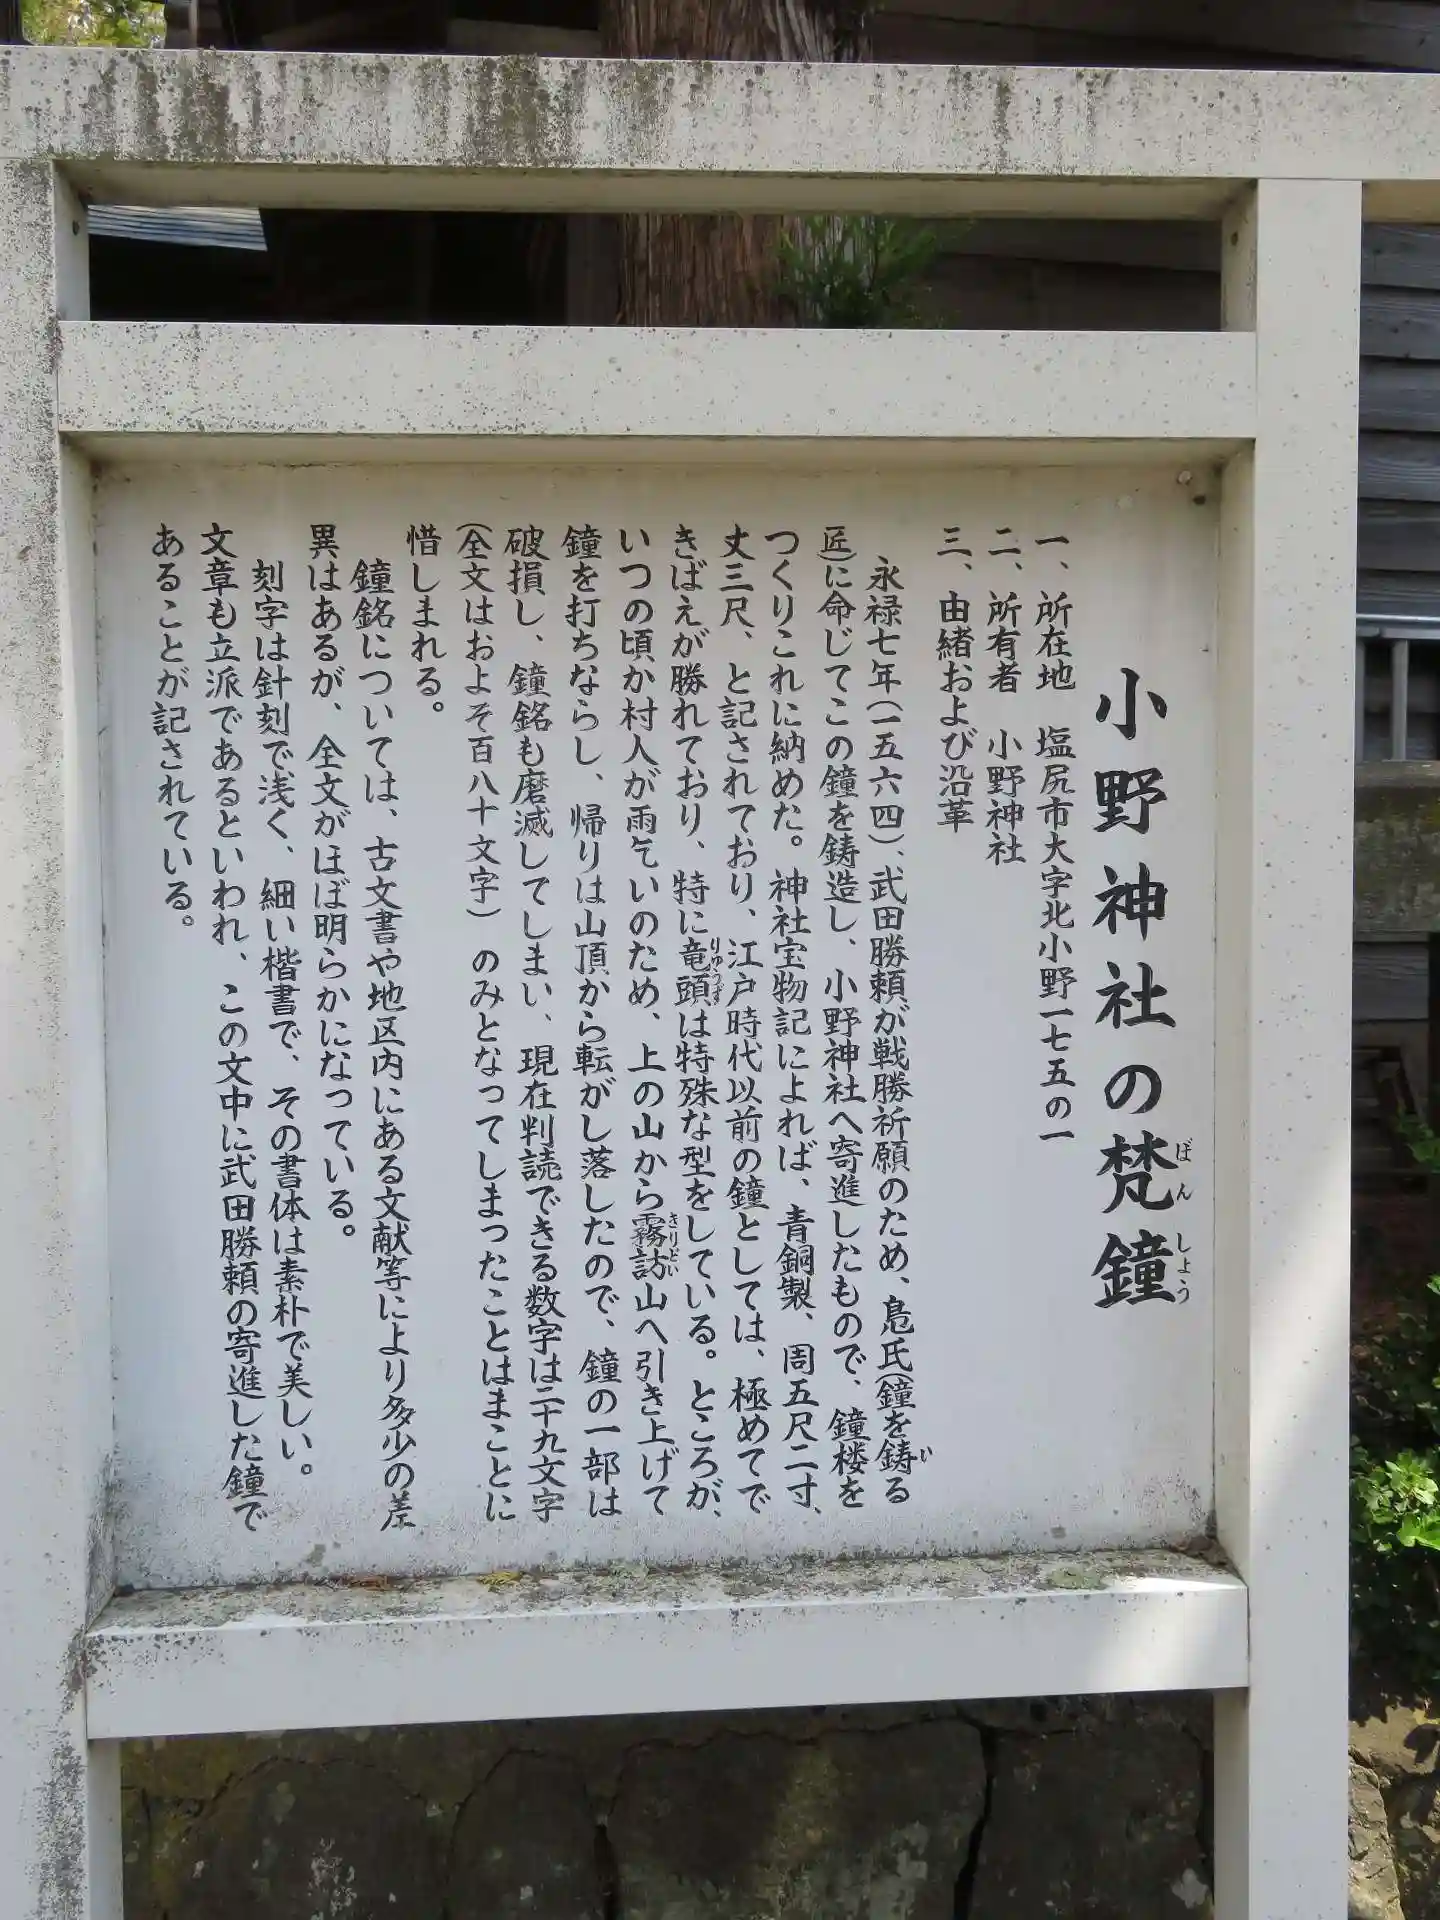 小野神社の梵鐘
ぼんしょう
一、所在地　塩尻市大字北小野一七五の一
二、所有者　小野神社
三、由緒および沿革
永禄七年(一五六四)、武田勝頼が戦勝祈願のため、鳧氏(鐘を鋳る
い
匠)に命じてこの鐘を鋳造し、小野神社へ寄進したもので、鐘楼を
つくりこれに納めた。神社宝物記によれば、青銅製、周五尺二寸、
丈三尺、と記されており、江戸時代以前の鐘としては、極めてで
きばえが勝れており、特に竜頭は特殊な型をしている。ところが、
りゅうず
いつの頃か村人が雨乞いのため、上の山から霧訪山へ引き上げて
きりどい
鐘を打ちならし、帰りは山頂から転がし落したので、鐘の一部は
破損し、鐘銘も磨滅してしまい、現在判読できる数字は二十九文字
(全文はおよそ百八十文字)のみとなってしまったことはまことに
惜しまれる。
鐘銘については、古文書や地区内にある文献等により多少の差
異はあるが、全文がほぼ明らかになっている。
刻字は針刻で浅く、細い楷書で、その書体は素朴で美しい。
文章も立派であるといわれ、この文中に武田勝頼の寄進した鐘で
あることが記されている。